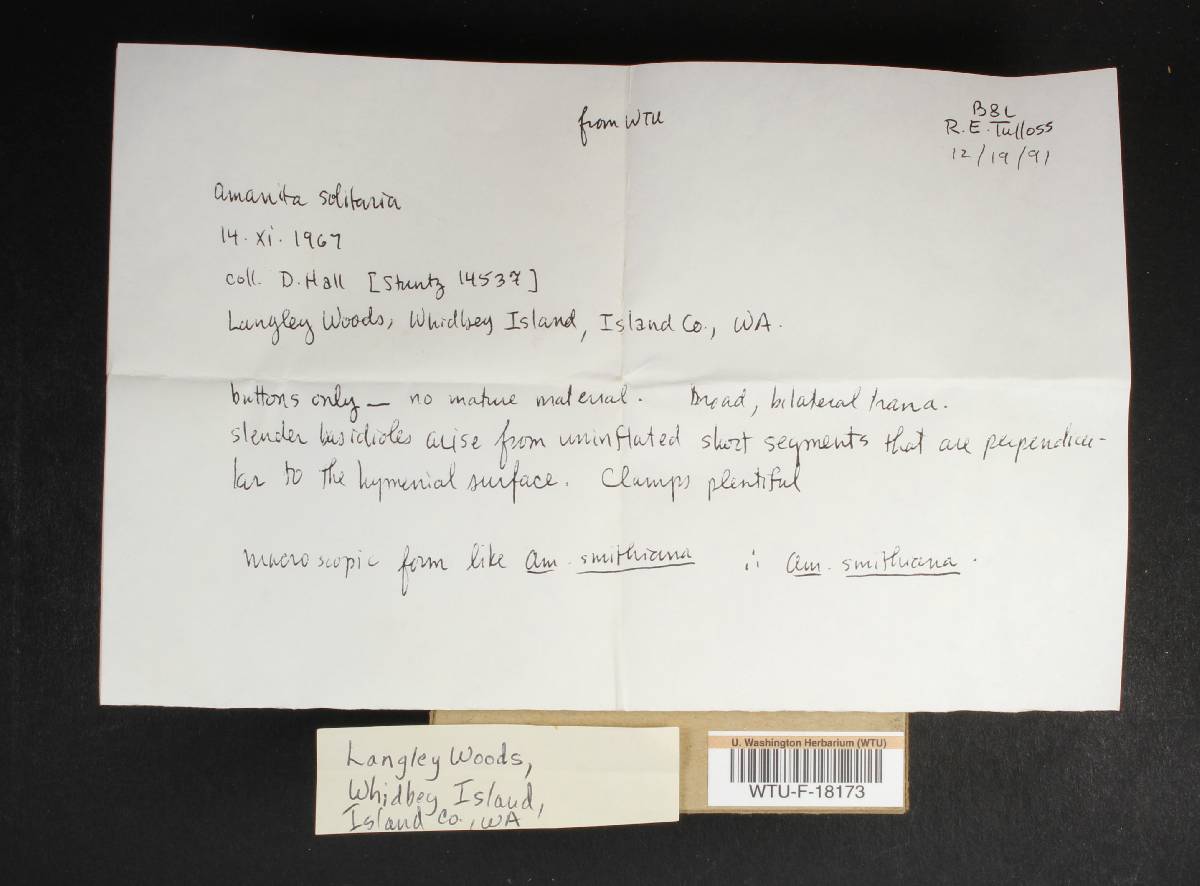 from WTU
B&L
R.E. Tulloss
12/19/91
Amanita solitaria
14. XI. 1967
coll. D. Hall [Stuntz 14537]
Langley Woods, Whidbey Island, Island Co., WA.
buttons only — no mature material. Broad, bilateral trama.
slender basidioles arise from uninflated short segments that are perpendicu-
lar to the hymenial surface. Clamps plentiful
macroscopic form like Am. smithiana ∴ Am. smithiana.
Langley Woods,
Whidbey Island,
Island Co., WA
U. Washington Herbarium (WTU)
WTU-F-18173